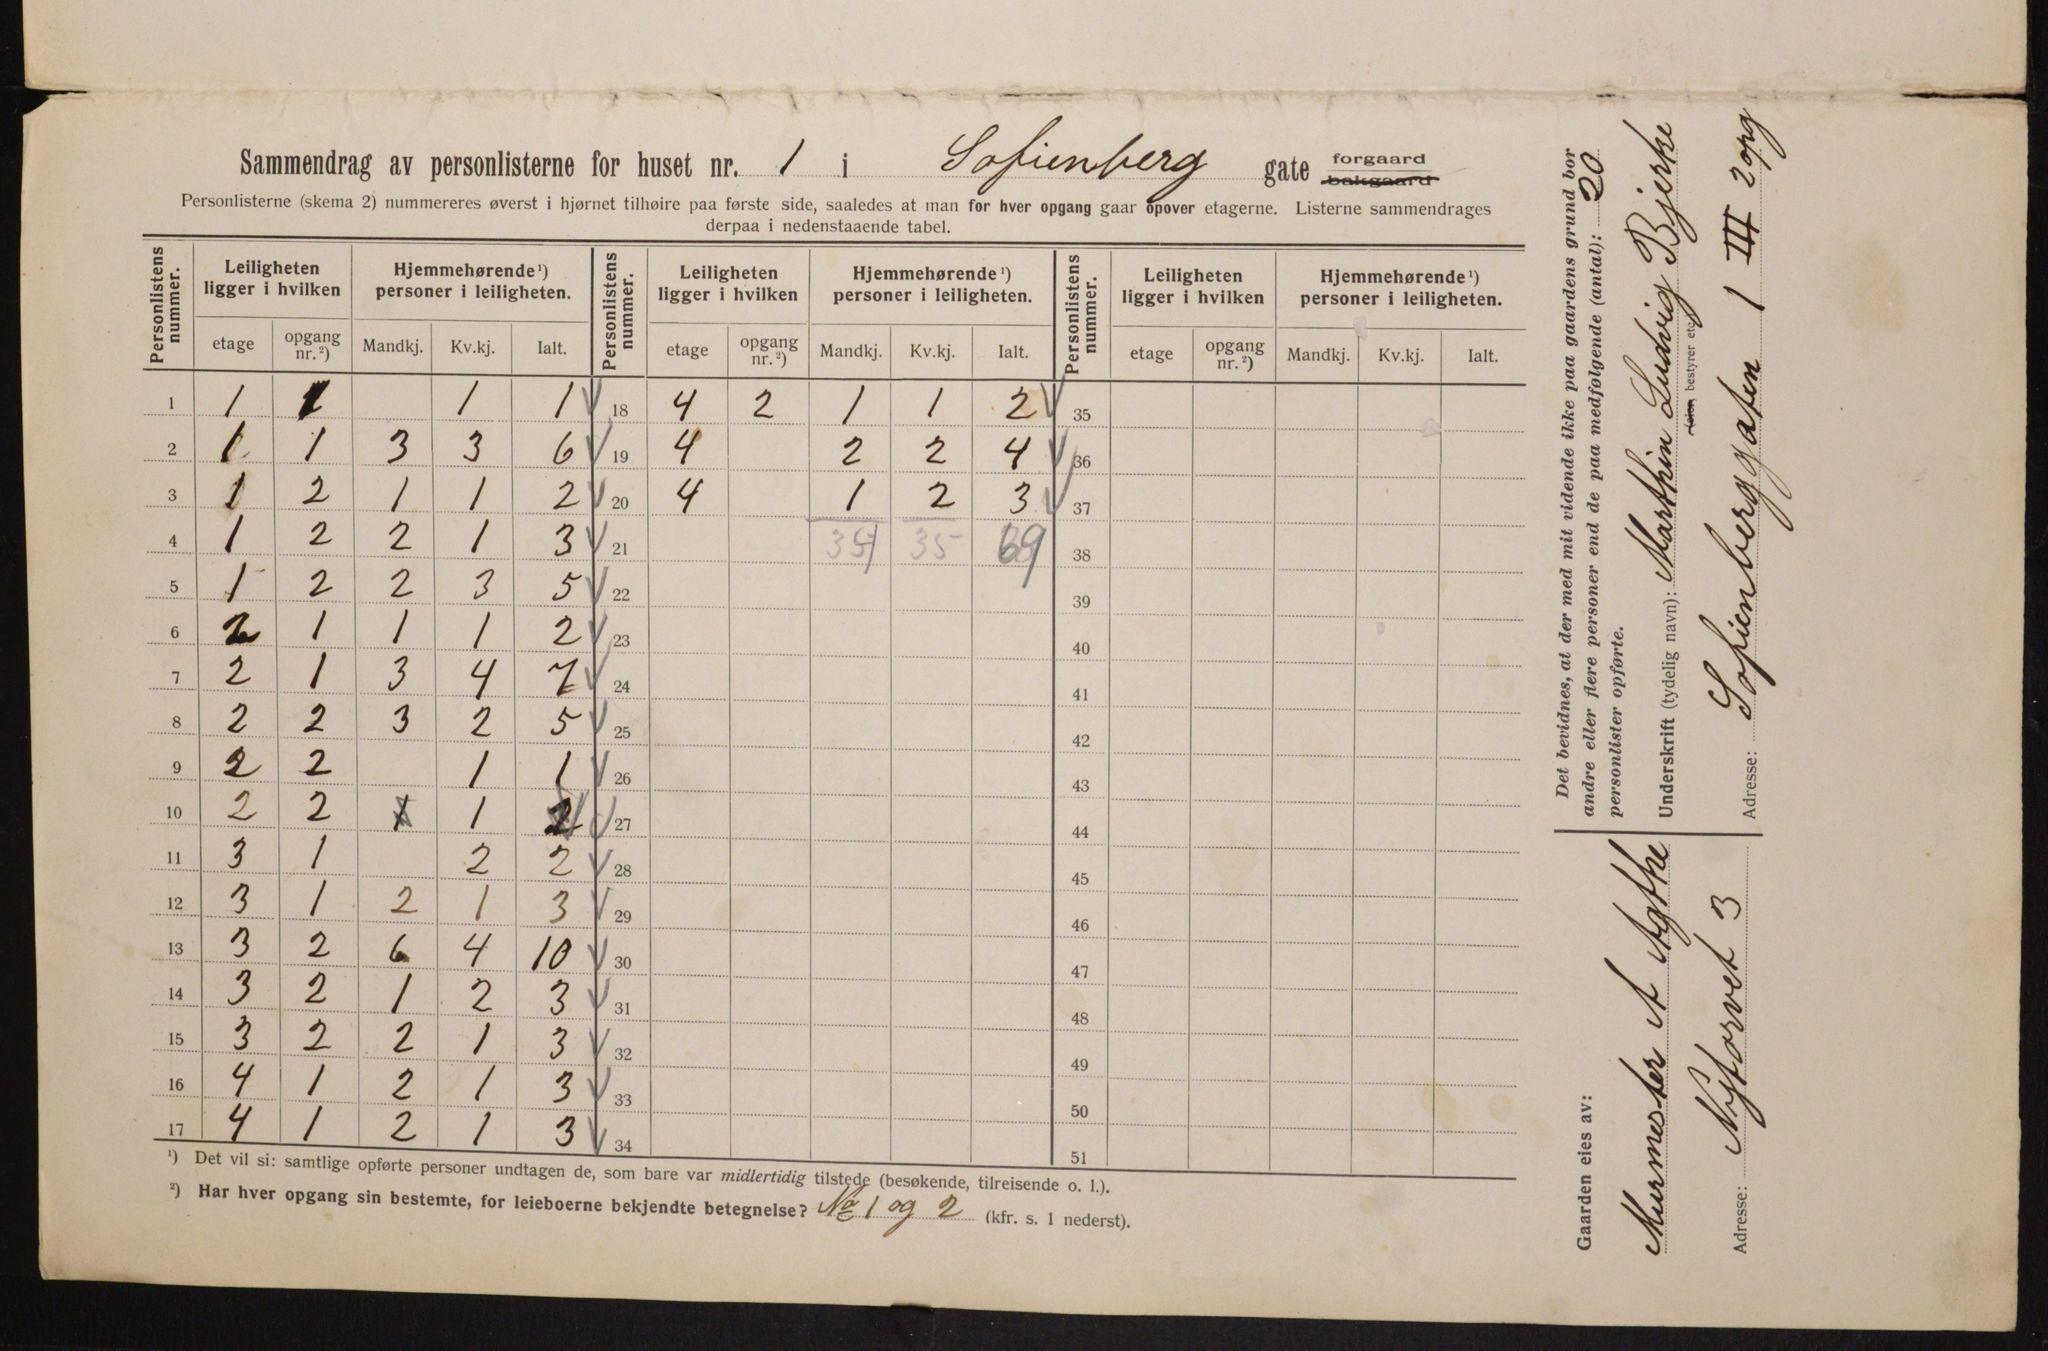 Sammendrag av personlisterne for huset nr. 1 i Sofienberg gate forgaard bakgaard
Personlisterne (skema 2) nummereres øverst i hjørnet tilhøire paa første side, saaledes at man for hver opgang gaar opover etagerne. Listerne sammendrages
derpaa i nedenstaaende tabel.
Personlistens nummer. Leiligheten ligger i hvilken Hjemmehørende¹) personer i leiligheten. Personlistens nummer. Leiligheten ligger i hvilken Hjemmehørende¹) personer i leiligheten. Personlistens nummer. Leiligheten ligger i hvilken Hjemmehørende¹) personer i leiligheten.
etage opgang nr.²) Mandkj. Kv.kj. Ialt. etage opgang nr.²) Mandkj. Kv.kj. Ialt. etage opgang nr.²) Mandkj. Kv.kj. Ialt.
1 1 1 1 1 18 4 2 1 1 2 35
2 1 1 3 3 6 19 4 2 2 4 36
3 1 2 1 1 2 20 4 1 2 3 37
4 1 2 2 1 3 21 35 69 38
5 1 2 2 3 5 22 39
6 2 1 1 1 2 23 40
7 2 1 3 4 7 24 41
8 2 2 3 2 5 25 42
9 2 2 1 1 26 43
10 2 2 1 1 2 27 44
11 3 1 2 2 28 45
12 3 1 2 1 3 29 46
13 3 2 6 4 10 30 47
14 3 2 1 2 3 31 48
15 3 2 2 1 3 32 49
16 4 1 2 1 3 33 50
17 4 1 2 1 3 34 51
¹) Det vil si: samtlige opførte personer undtagen de, som bare var midlertidig tilstede (besøkende, tilreisende o. l.).
²) Har hver opgang sin bestemte, for leieboerne bekjendte betegnelse? No 1 og 2 (kfr. s. 1 nederst).
Det bevidnes, at der med mit vidende ikke paa gaardens grund bor
andre eller flere personer end de paa medfølgende (antal): 20
personlister opførte.
Underskrift (tydelig navn): Marthin Ludvig Bjerke
(eier, bestyrer etc.)
Adresse: Sofienberggaten 1 III 2 opg
Gaarden eies av:
Murmester A
Adresse: Nytorvet 3